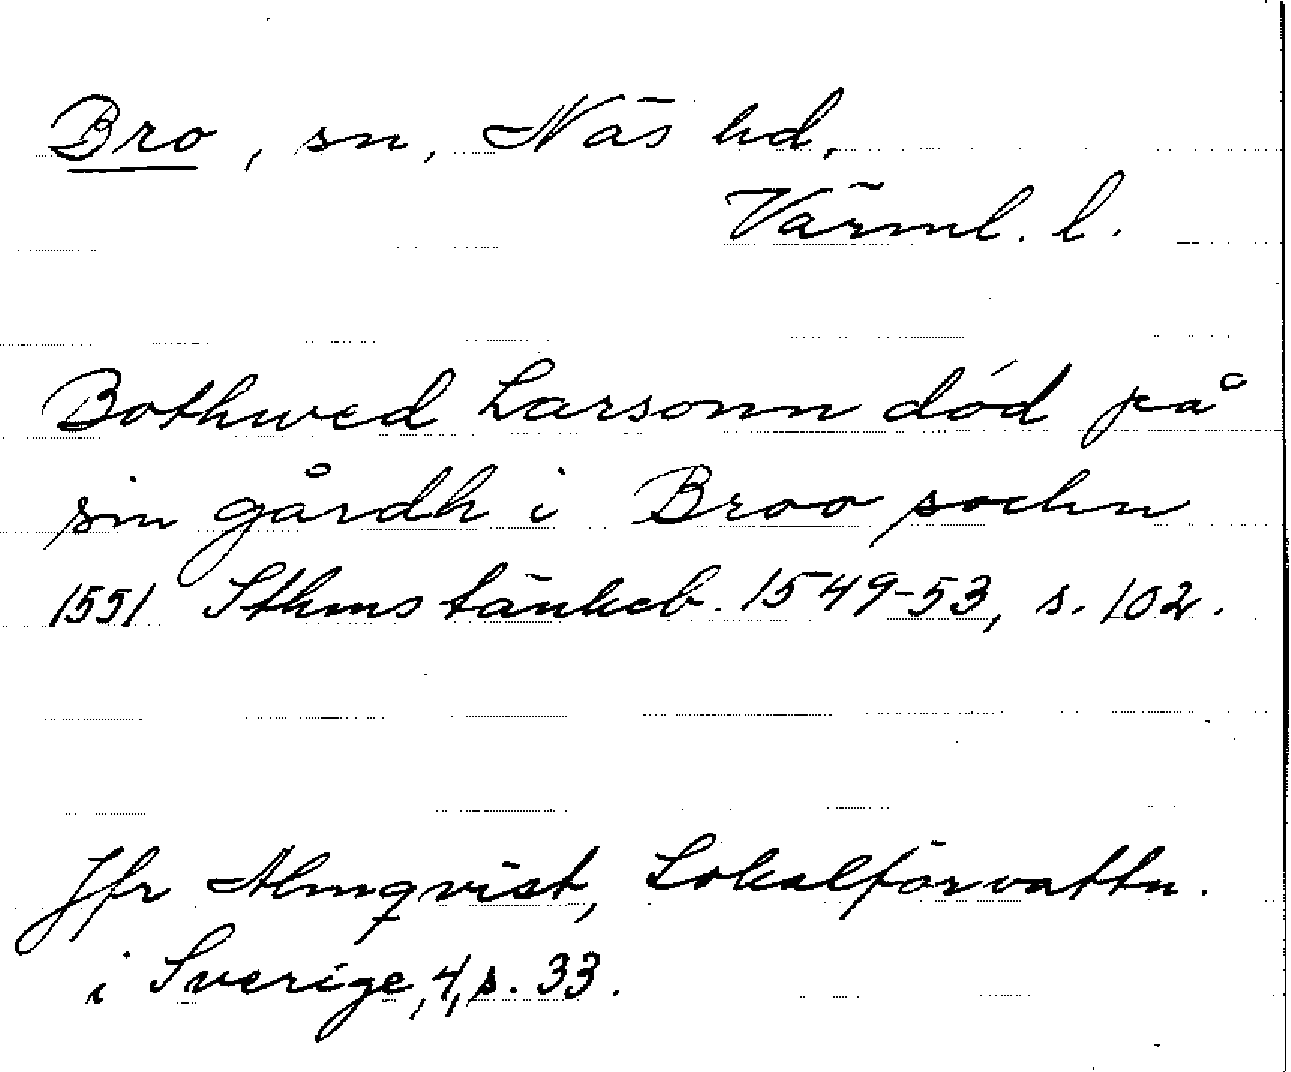 Bro, sn, Näs hd,
Värml. l.
Bothwed Larsonn död på
sin gårdh i Broo sochn
1551 Sthms tänkeb. 1549-53, s. 102.
Jfr Almqvist, Lokalförvaltn.
i Sverige, 4, s. 33.